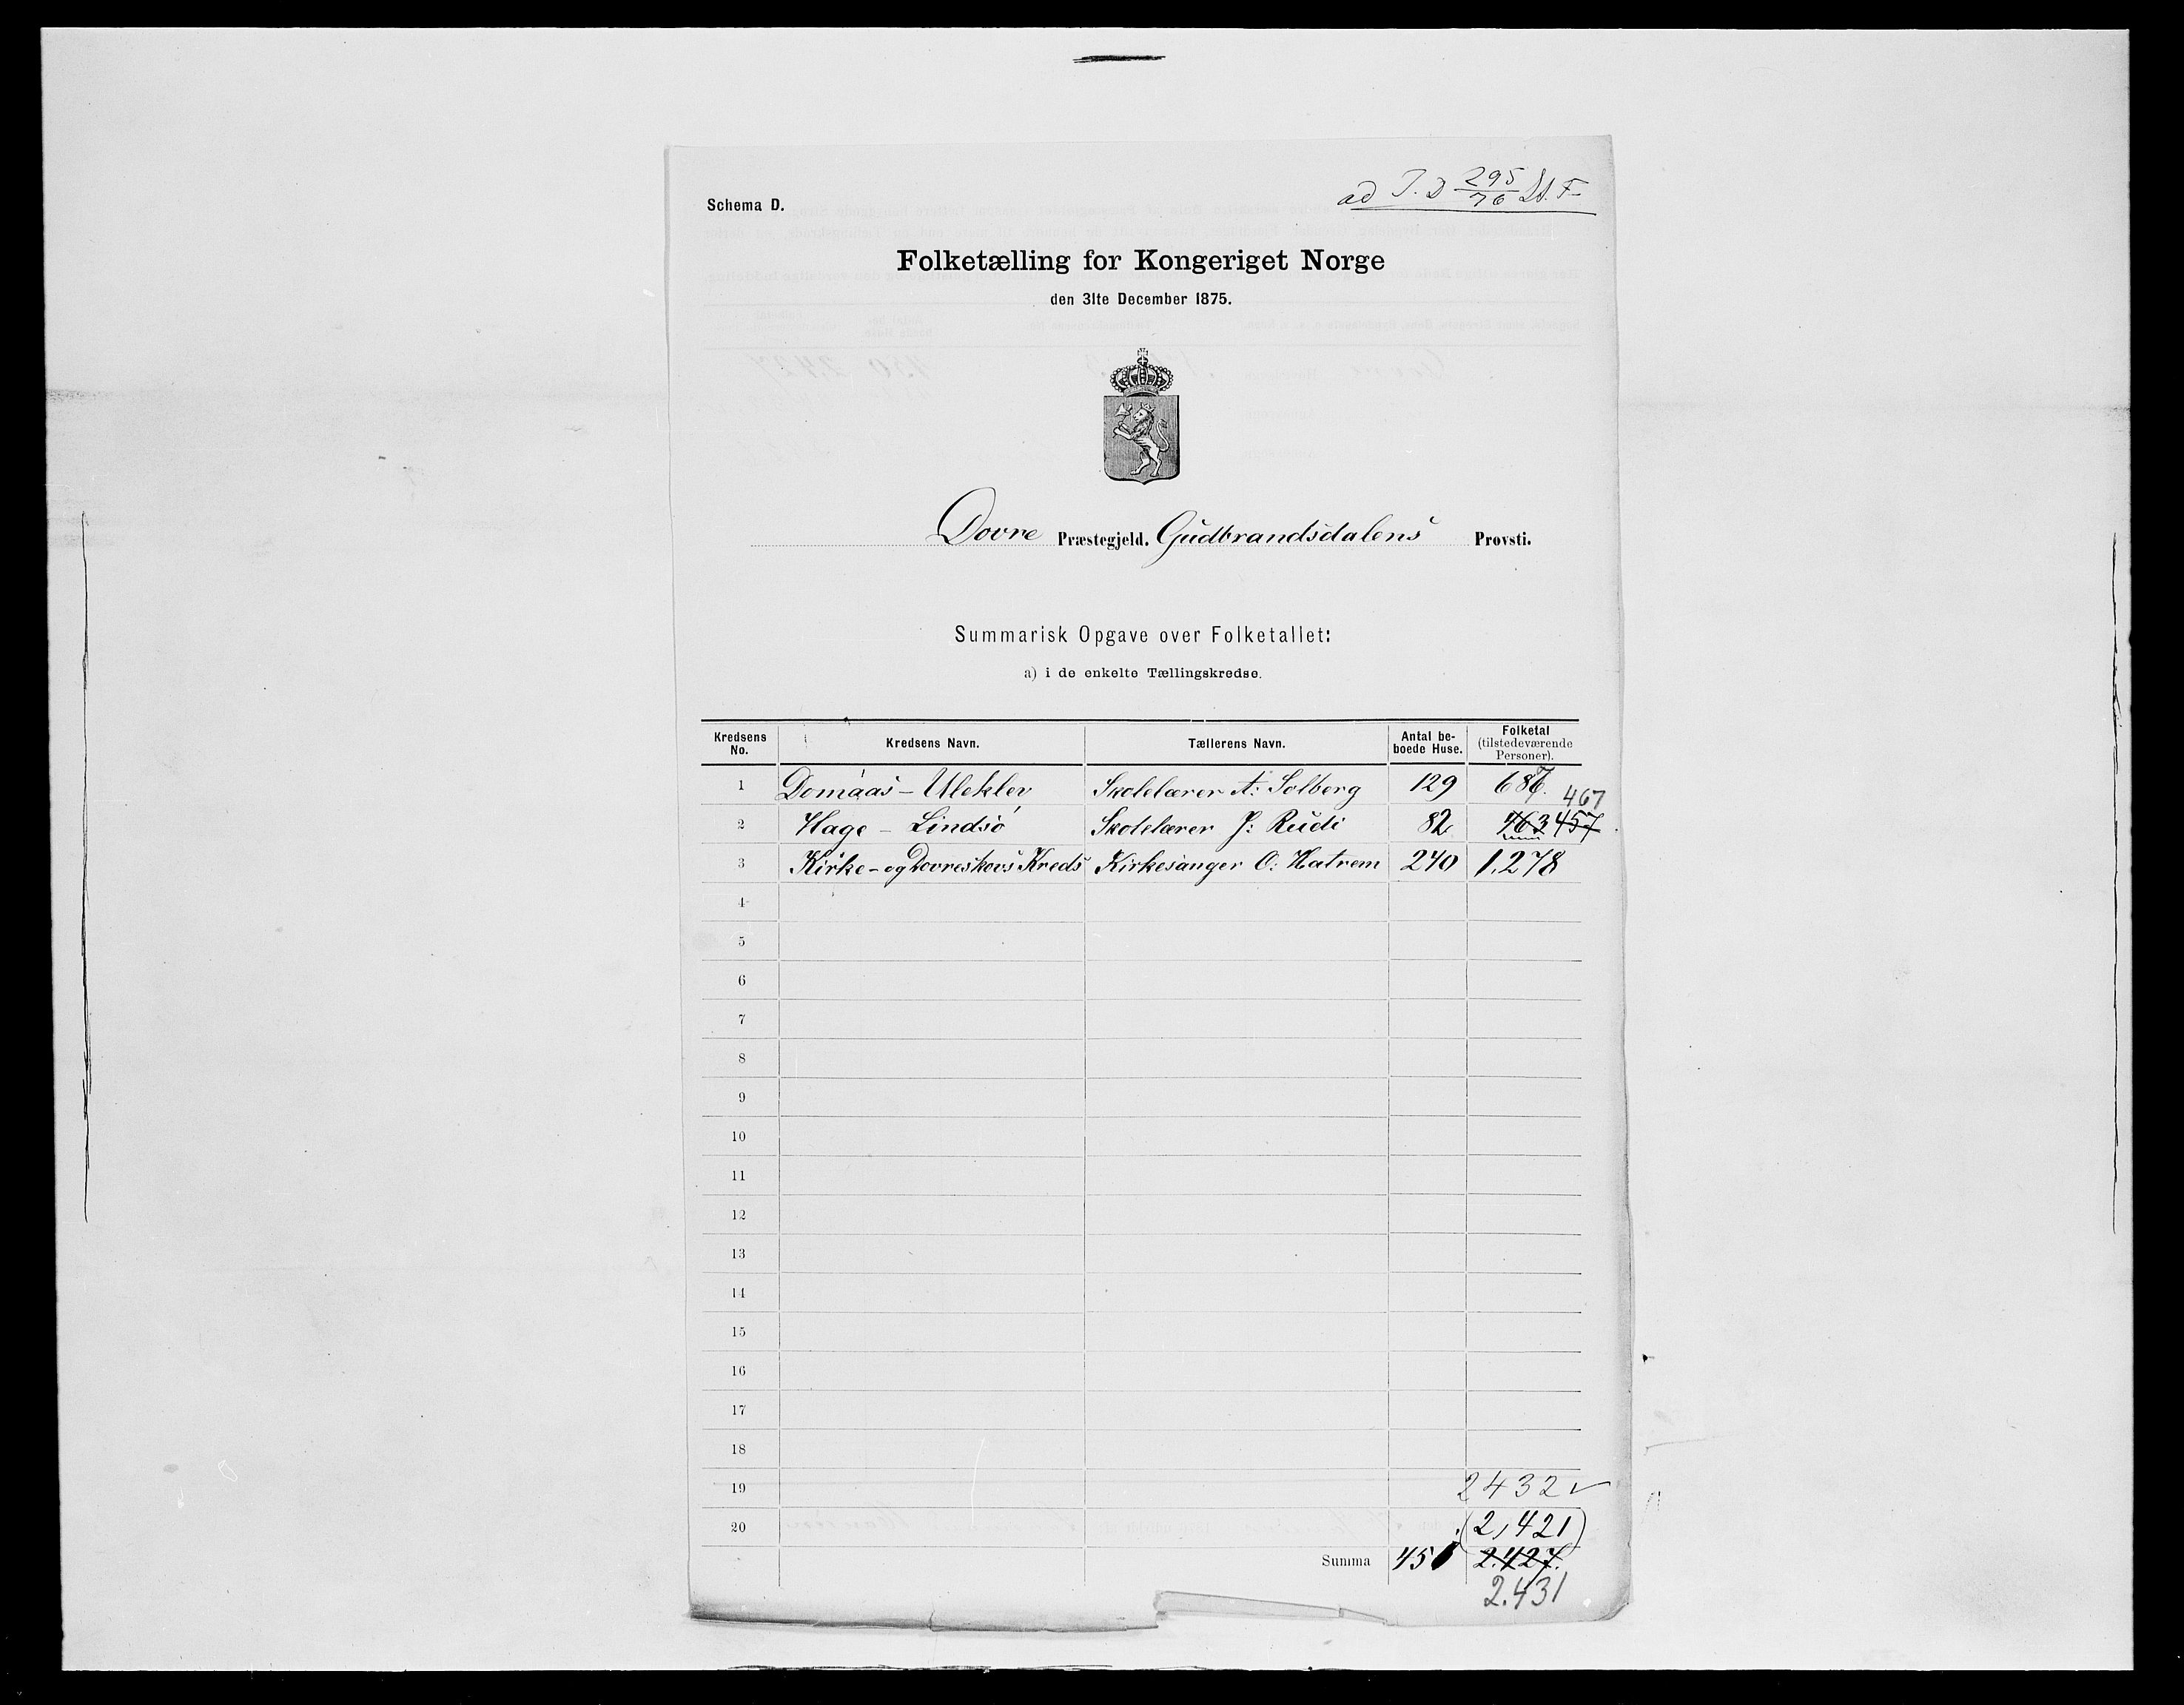 Schema D.
ad J. D 295/76 St. F.
Folketælling for Kongeriget Norge
den 31te December 1875.
Dovre Præstegjeld. Gudbrandsdalens Provsti.
Summarisk Opgave over Folketallet:
a) i de enkelte Tællingskredse.
Kredsens No. Kredsens Navn. Tællerens Navn. Antal beboede Huse. Folketal (tilstedeværende Personer).
1 Domaas - Uleklev Skolelærer A: Solberg 129 687.
467
2 Hage - Lindsø Skolelærer P: Rudi 82 463 457
3 Kirke- og Dovreskovs Kreds Kirkesanger O: Hatrem 240 1.278
4
5
6
7
8
9
10
11
12
13
14
15
16
17
18
19 2432
20 (2,421)
Summa 451 2.427.
2.431